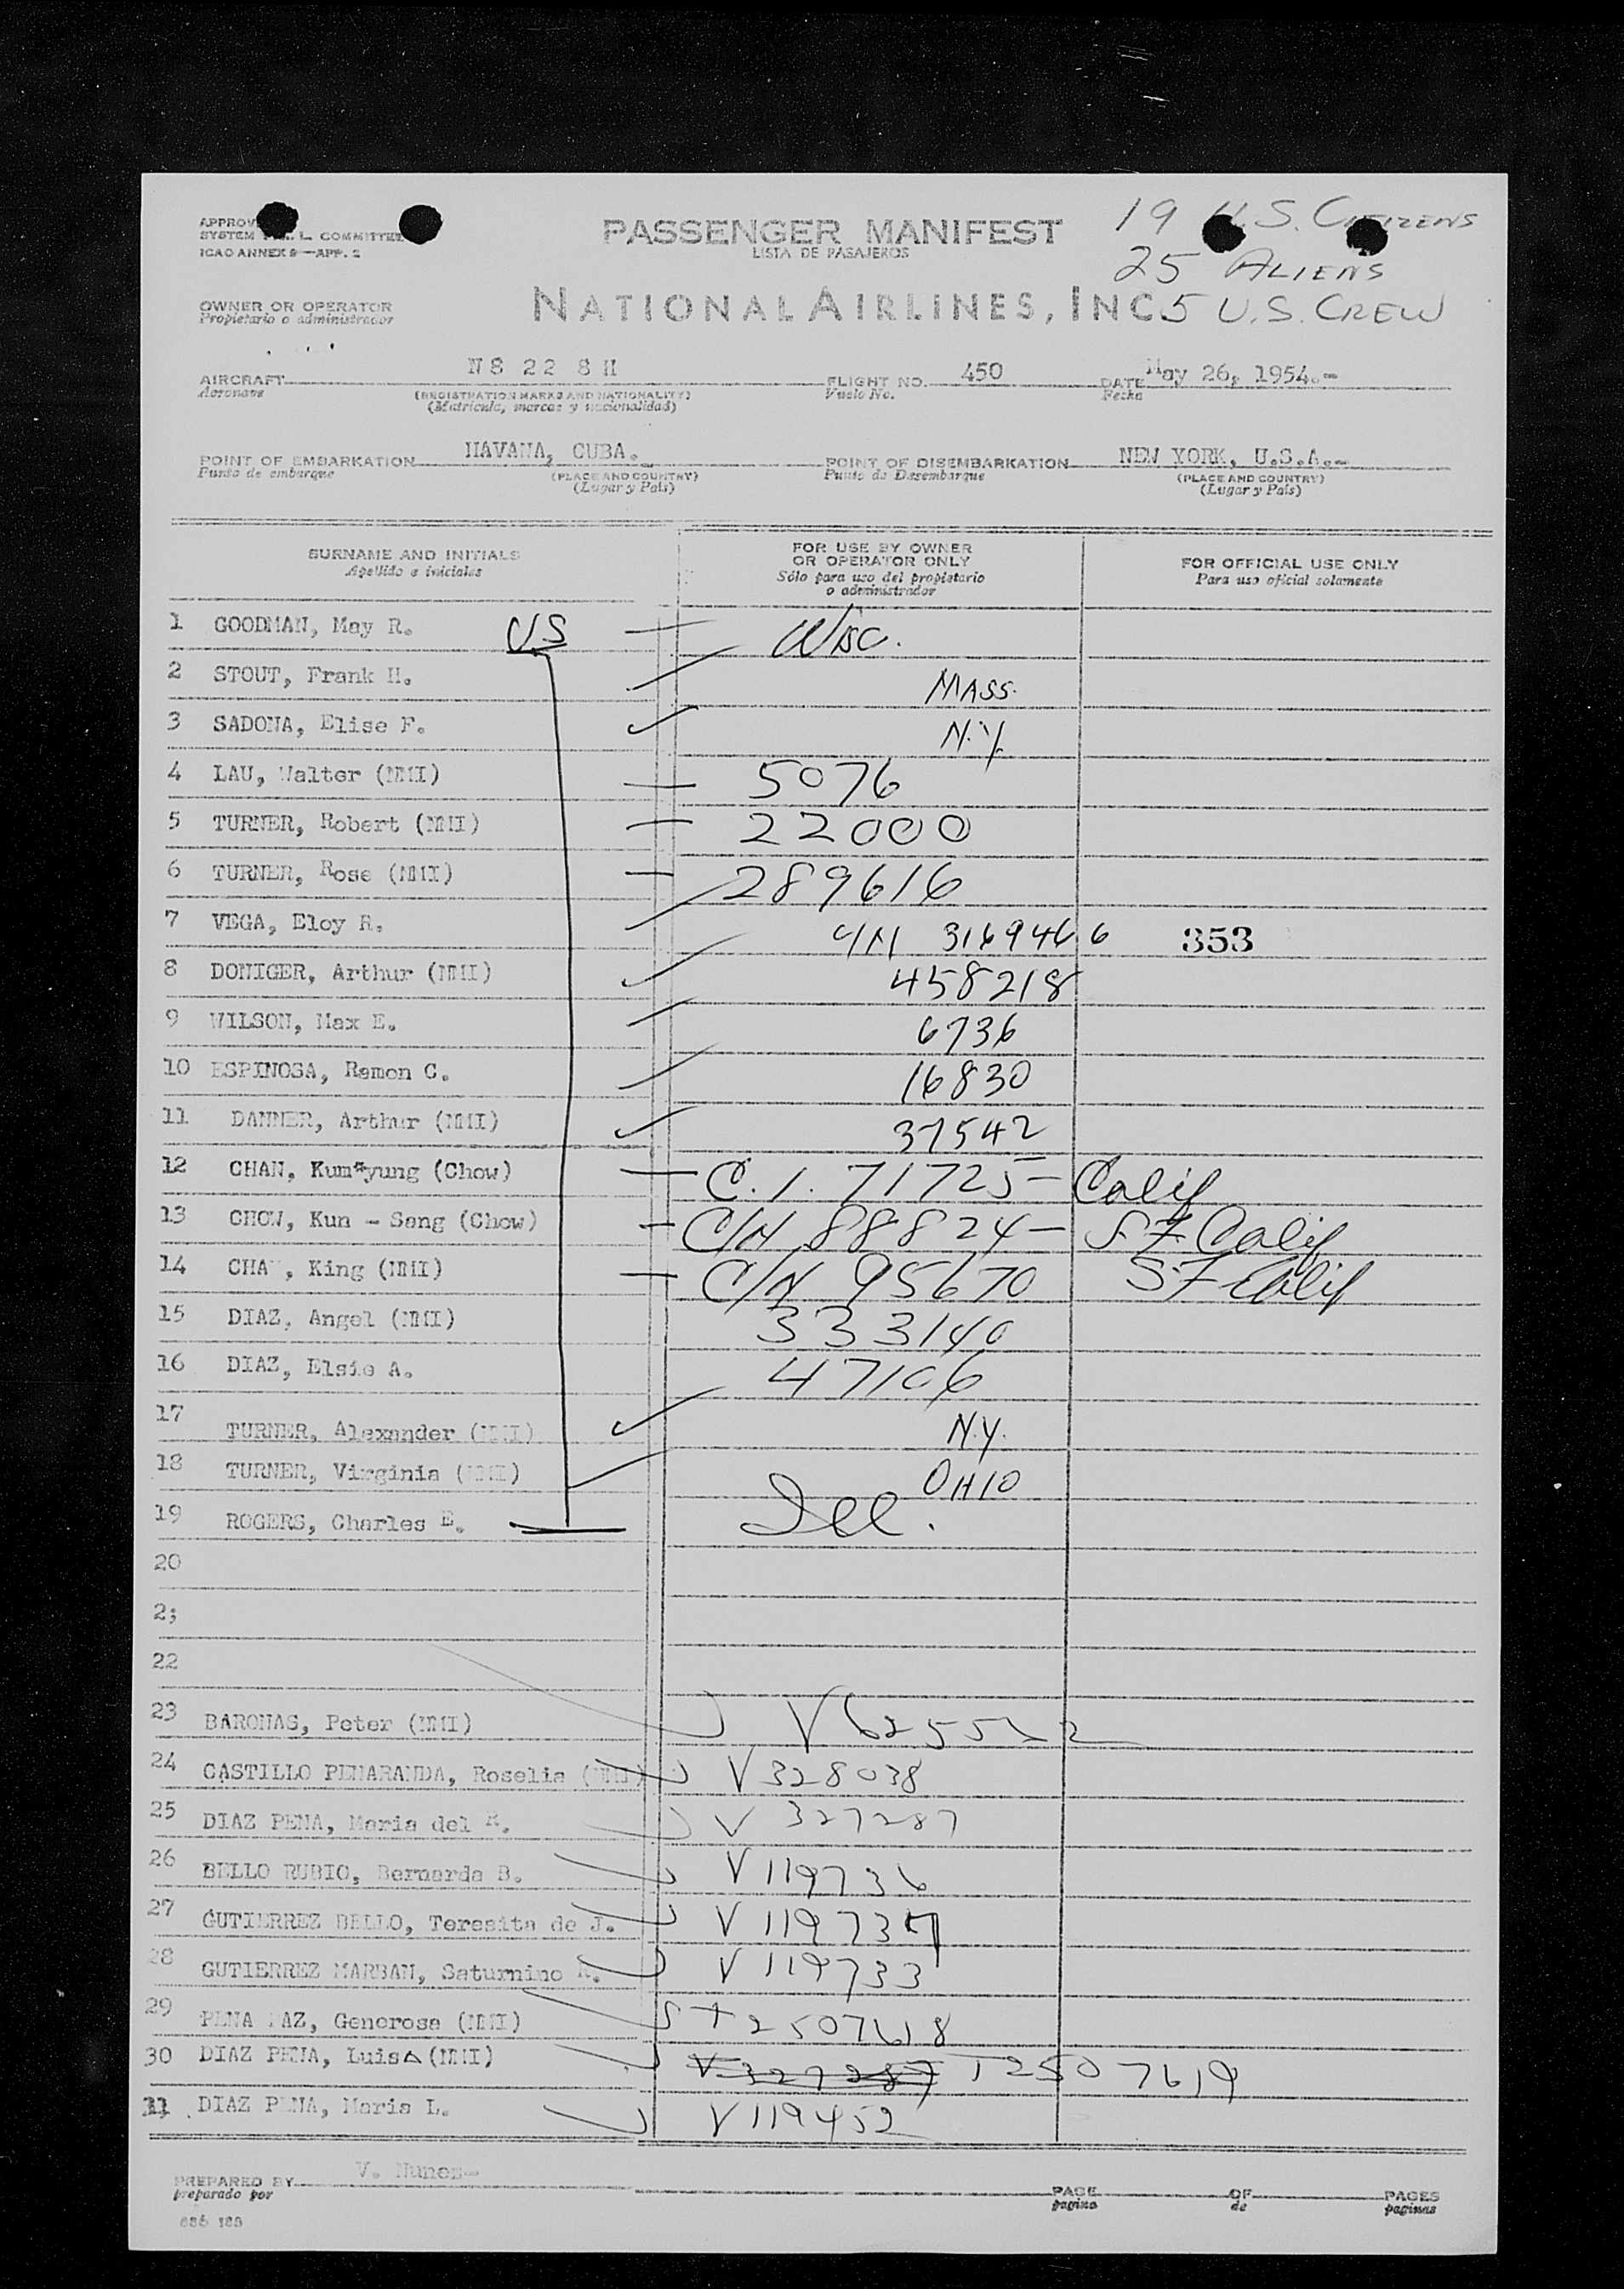 19 U.S. CITIZENS
25 ALIENS
5 U.S. CREW
SYSTEM L. COMMITTEE
ICAO ANNEX 9—APP. 2
PASSENGER MANIFEST
LISTA DE PASAJEROS
OWNER OR OPERATOR
Propietario o administrador
NATIONAL AIRLINES, INC.
AIRCRAFT N8 22 8 H FLIGHT NO. 450 DATE May 26, 1954.-
Aeronave (REGISTRATION MARKS AND NATIONALITY) Vuelo No. Fecha
(Matrícula, marcas y nacionalidad)
POINT OF EMBARKATION HAVANA, CUBA. POINT OF DISEMBARKATION NEW YORK, U.S.A.-
Punto de embarque (PLACE AND COUNTRY) Punto de Desembarque (PLACE AND COUNTRY)
(Lugar y País) (Lugar y País)
SURNAME AND INITIALS FOR USE BY OWNER OR OPERATOR ONLY FOR OFFICIAL USE ONLY
Apellido e iniciales Sólo para uso del propietario o administrador Para uso oficial solamente
1 GOODMAN, May R. US Wisc.
2 STOUT, Frank H. MASS.
3 SADONA, Elise F. N.Y.
4 LAU, Walter (NMI) 5076
5 TURNER, Robert (NMI) 22000
6 TURNER, Rose (NMI) 289616
7 VEGA, Eloy R. C/N 3169466 353
8 DONIGER, Arthur (NMI) 458218
9 WILSON, Max E. 6736
10 ESPINOSA, Ramon C. 16830
11 DANNER, Arthur (NMI) 37542
12 CHAN, Kum-yung (Chow) C.I. 71725- Calif
13 CHOW, Kun - Sang (Chow) C/N 88824- S.F. Calif
14 CHA , King (NMI) C/N 95670 S.F. Calif
15 DIAZ, Angel (NMI) 333140
16 DIAZ, Elsie A. 47106
17 TURNER, Alexander (NMI) N.Y.
18 TURNER, Virginia (NMI) OHIO
19 ROGERS, Charles E. Ill.
20
2;
22
23 BARONAS, Peter (NMI) V
24 CASTILLO PENARANDA, Roselia (NMI) V 328038
25 DIAZ PENA, Maria del R. V 327287
26 BELLO RUBIO, Bernarda B. V 119736
27 GUTIERREZ BELLO, Teresita de J. V 119737
28 GUTIERREZ MARBAN, Saturnino R. V 119733
29 PENA PAZ, Generosa (NMI) T 2507618
30 DIAZ PENA, Luisa (NMI) V 327287 T2507619
31 DIAZ PENA, Maria L. V 119452
PREPARED BY V. Nunez- PAGE OF PAGES
preparado por pagina de paginas